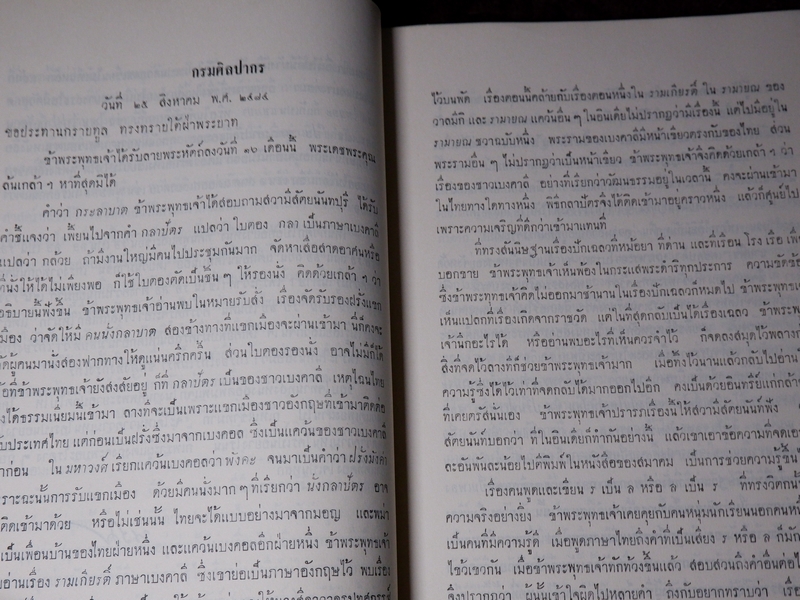 กรมศิลปากร
วันที่ ๒๕ สิงหาคม พ.ศ. ๒๔๘๔
ขอประทานกราบทูล ทรงทราบใต้ฝ่าพระบาท
ข้าพระพุทธเจ้าได้รับลายพระหัตถ์ลงวันที่ ๑๖ เดือนนี้ พระเดชพระคุณ
ล้นเกล้า ฯ หาที่สุดมิได้
คำว่า กระลาบาต ข้าพระพุทธเจ้าได้สอบถามสวามีสัตยนันทบุรี ได้รับ
คำชี้แจงว่า เพี้ยนไปจากคำ กลาปัตร แปลว่า ใบตอง กลา เป็นภาษาเบงคาลี
แปลว่า กล้วย ถ้ามีงานใหญ่มีคนไปประชุมกันมาก จัดหาเสื่อสาดอาศนหรือ
ที่นั่งให้ได้ไม่เพียงพอ ก็ใช้ใบตองตัดเป็นชิ้น ๆ ให้รองนั่ง คิดด้วยเกล้า ฯ ว่า
อธิบายนี้ฟังขึ้น ข้าพระพุทธเจ้าอ่านพบในหมายรับสั่ง เรื่องจัดรับรองฝรั่งแขก
เมือง ว่าจัดให้มี คนนั่งกลาบาต สองข้างทางที่แขกเมืองจะผ่านเข้ามา นี่ก็คงจะ
จัดผู้คนมานั่งสองฟากทางให้ดูแน่นครึกครื้น ส่วนใบตองรองนั่ง อาจไม่มีก็ได้
ข้อที่ข้าพระพุทธเจ้ายังสงสัยอยู่ ก็ที่ กลาปัตร เป็นของชาวเบงคาลี เหตุไฉนไทย
จึงได้ธรรมเนียมนี้เข้ามา ลางที่จะเป็นเพราะแขกเมืองชาวอังกฤษที่เข้ามาติดต่อ
กับประเทศไทย แต่ก่อนเป็นฝรั่งซึ่งมาจากเบงคอล ซึ่งเป็นแคว้นของชาวเบงคาลี
มาก่อน ใน มหาวงศ์ เรียกแคว้นเบงคอลว่า พังคะ จนมาเป็นคำว่า ฝรั่งมังค่า
เพราะฉะนั้นการรับแขกเมือง ด้วยมีคนนั่งมาก ๆ ที่เรียกว่า นั่งกลาบัตร อาจ
ติดเข้ามาด้วย หรือไม่เช่นนั้น ไทยจะได้แบบอย่างมาจากมอญ และพม่า
เป็นเพื่อนบ้านของไทยฝ่ายหนึ่ง และแคว้นเบงคอลอีกฝ่ายหนึ่ง ข้าพระพุทธเจ้า
อ่านเรื่อง รามเกียรติ์ ภาษาเบงคาลี ซึ่งเขาย่อเป็นภาษาอังกฤษไว้ พบเรื่อง
ไว้บนพัด เรื่องตอนนี้คล้ายกับเรื่องตอนหนึ่งใน รามเกียรติ์ ใน รามายณ ของ
วาลมีกิ และ รามายณ แคว้นอื่น ๆ ในอินเดียไม่ปรากฏว่ามีเรื่องนี้ แต่ไปมีอยู่ใน
รามายณ ชวาฉบับหนึ่ง พระรามของเบงคาลีมีหน้าเขียวตรงกับของไทย ส่วน
พระรามอื่น ๆ ไม่ปรากฏว่าเป็นหน้าเขียว ข้าพระพุทธเจ้าจึงคิดด้วยเกล้า ฯ ว่า
เรื่องของชาวเบงคาลี อย่างที่เรียกว่าวัฒนธรรมอยู่ในเวลานี้ คงจะผ่านเข้ามา
ในไทยทางใดทางหนึ่ง พิธีกลาปัตรจึงได้ติดเข้ามาอยู่คราวหนึ่ง แล้วก็สูญไป
เพราะความเจริญที่ดีกว่าเข้ามาแทนที่
ที่ทรงสันนิษฐานเรื่องปักเฉลวที่หม้อยา ที่ด่าน และที่เรือน โรง เรือ เพื่อ
บอกขาย ข้าพระพุทธเจ้าเห็นพ้องในกระแสพระดำริทุกประการ ความขัดข้อง
ซึ่งข้าพระพุทธเจ้าคิดไม่ออกมาช้านานในเรื่องปักเฉลวก็หมดไป ข้าพระพุทธเจ้า
เห็นแปลกที่เรื่องเกิดจากราชวัด แต่ในที่สุดกลับเป็นได้เรื่องเฉลว ข้าพระพุทธ
เจ้านึกอะไรได้ หรืออ่านพบอะไรที่เห็นควรจำไว้ ก็จดลงสมุดไว้พลาง
สิ่งที่จดไว้ลางทีก็ช่วยข้าพระพุทธเจ้ามาก เมื่อทิ้งไว้นานแล้วกลับไปอ่าน
ความรู้ซึ่งได้ไว้เท่าที่จดกลับได้มากออกไปอีก คงเป็นด้วยอินทรีย์แก่กล้า
ที่เคยตรัสนั่นเอง ข้าพระพุทธเจ้าปรารภเรื่องนี้ให้สวามีสัตยนันท์ฟัง
สัตยนันท์บอกว่า ที่ในอินเดียก็ทำกันอย่างนี้ แล้วเขาเอาข้อความที่จดเอา
ละอันพันละน้อยไปตีพิมพ์ในหนังสือของสมาคม เป็นการช่วยความรู้ขึ้น
เรื่องคนพูดและเขียน ร เป็น ล หรือ ล เป็น ร ที่ทรงวิตกนั้น
ความจริงอย่างยิ่ง ข้าพระพุทธเจ้าเคยคุยกับคนหนุ่มนักเรียนนอกคนหนึ่ง
เป็นคนที่มีความรู้ดี เมื่อพูดภาษาไทยถึงคำที่เป็นเสียง ร หรือ ล ก็มัก
ไขว้เขวกัน เมื่อข้าพระพุทธเจ้าทักท้วงขึ้นแล้ว สอบสวนถึงคำอื่นต่อไป
จึงปรากฏว่า ผู้นั้นเข้าใจผิดไปหลายคำ ถึงกับอยากทราบว่า เรื่อง